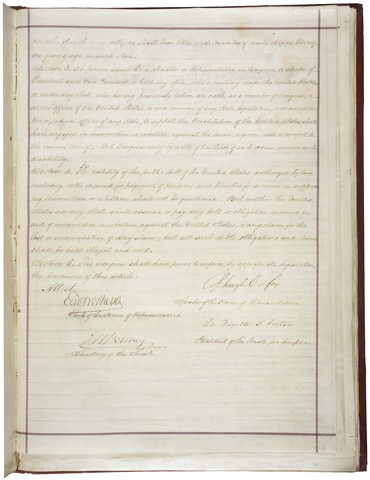 number of such citizens shall bear to the whole number of male citizens twenty
one years of age in such State.
Section 3. No person shall be a Senator or Representative in Congress, or elector of
President and Vice President, or hold any office, civil or military, under the United States,
or under any State, who having previously taken an oath, as a member of Congress, or
as an officer of the United States, or as a member of any State legislature, or as an execu-
tive or judicial officer of any State, to support the Constitution of the United States, shall
have engaged in insurrection or rebellion against the same, or given aid or comfort to
the enemies thereof. But Congress may by a vote of two thirds of each House, remove such
disability.
Section 4. The validity of the public debt of the United States, authorized by law,
including debts incurred for payment of pensions and bounties for services in suppress-
ing insurrection or rebellion, shall not be questioned. But neither the United
States nor any State shall assume or pay any debt or obligation incurred in
aid of insurrection or rebellion against the United States, or any claim for the
loss or emancipation of any slave; but all such debts, obligations and claims
shall be held illegal and void.
Section 5. The Congress shall have power to enforce, by appropriate legislation,
the provisions of this article.
Attest
Schuyler Colfax
Edwd McPherson
Speaker of the House of Representatives.
Clerk of the House of Representatives.
La Fayette S. Foster
J W Forney
President of the Senate pro tempore.
Secretary of the Senate.